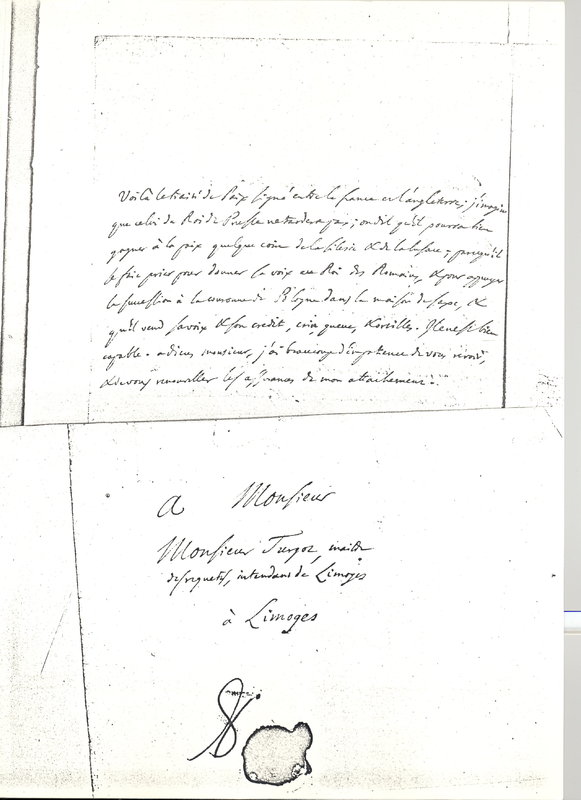 Voilà le traité de Paix signé entre la france et l'angleterre; j'imagine
que celui du Roi de Prusse ne tardera pas; on dit qu'il pourra bien
gagner à la paix quelque coin de la Silesie & de la ; parcequ'il
se fait prier pour donner sa voix au Roi des Romains, & pour appuyer
la succession à la couronne de Pologne dans la maison de saxe, &
qu'il vend sa voix & son credit, crin, queue, & oreilles. Il en est bien
capable. adieu monsieur, j'ai beaucoup d'impatience de vous revoir,
& de vous renouveller les assurances de mon attachement.
A Monsieur
Monsieur Turgot, maitre
des requetes, intendant de Limoges
à Limoges